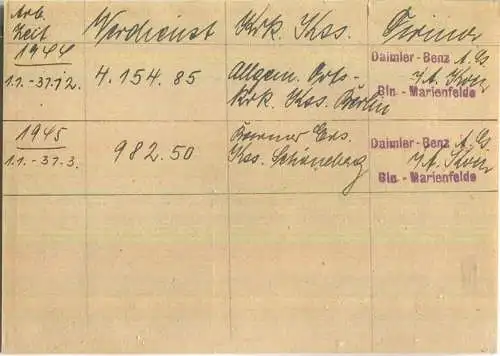 Arb. Zeit Verdienst Krk. Kss. Firma
1944
1.1. - 31.12. 4.154.85 Allgem. Orts- Daimler-Benz A.G.
Krk. Kss. Berlin Bln.-Marienfelde
1945
1.1. - 31.3. 982.50 Ers. Daimler-Benz A.G.
Kss. Schöneberg Bln.-Marienfelde